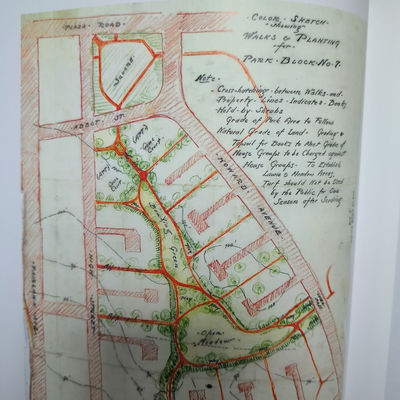 Color Sketch
- showing -
Walks & Planting
- for -
Park Block No. 7.
Note -
- Cross-hatchings - between Walks and
Property - Lines - Indicates - Banks
Held - by Shrubs
Grade of Park Area to Follow
Natural Grade of Land - Grading &
Topsoil for Banks to Meet Grades of
House Groups to be Charged against
House Groups - To Establish
Lawns & Meadow Areas,
Turf should Not be Used
by the Public for One
Season after Seeding.
Plaza Road
Square
Abbot St.
Howard Avenue
Green
Open
Meadow
High Street